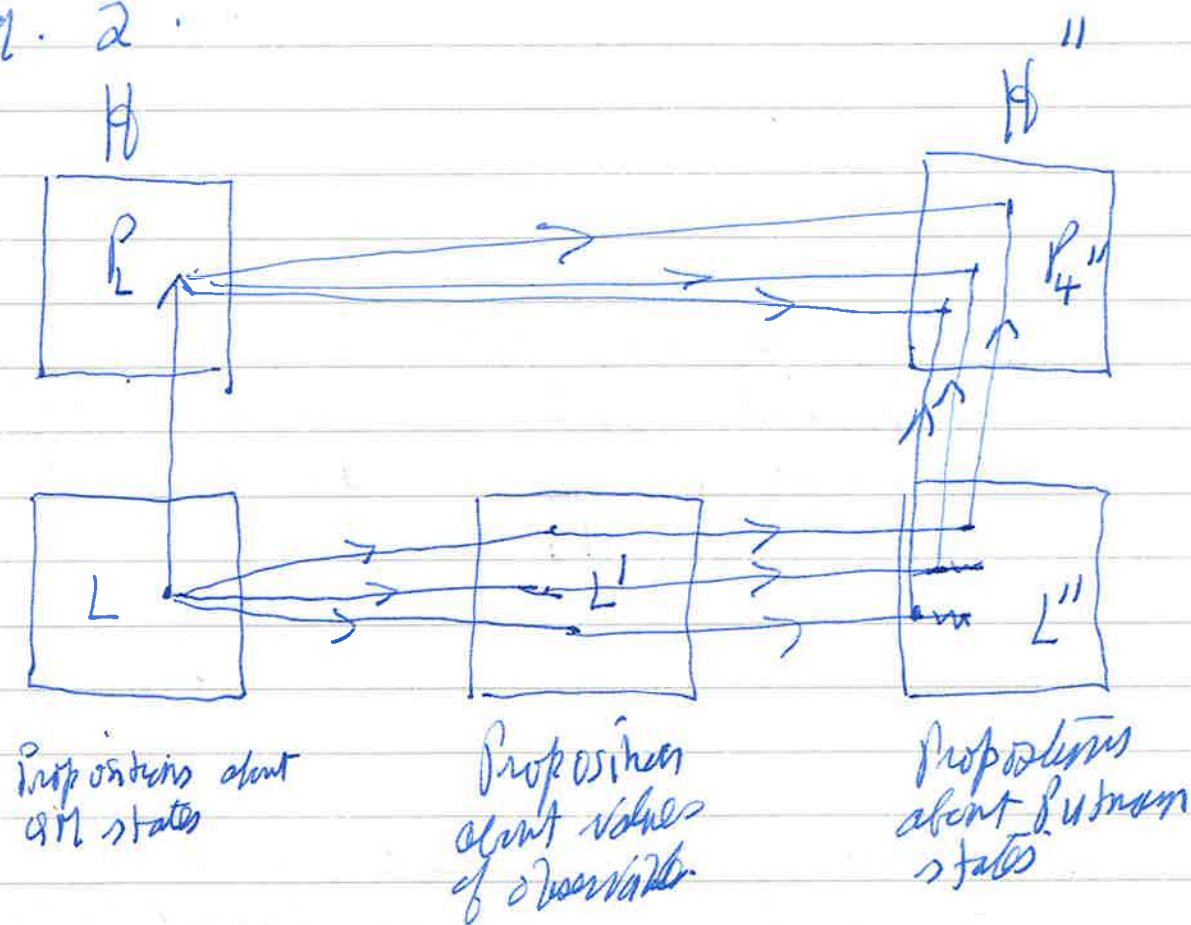 2.
H H"
P_L P_4"
L L' L"
Propositions about
QM states
Propositions
about values
of observables.
Propositions
about Putnam
states